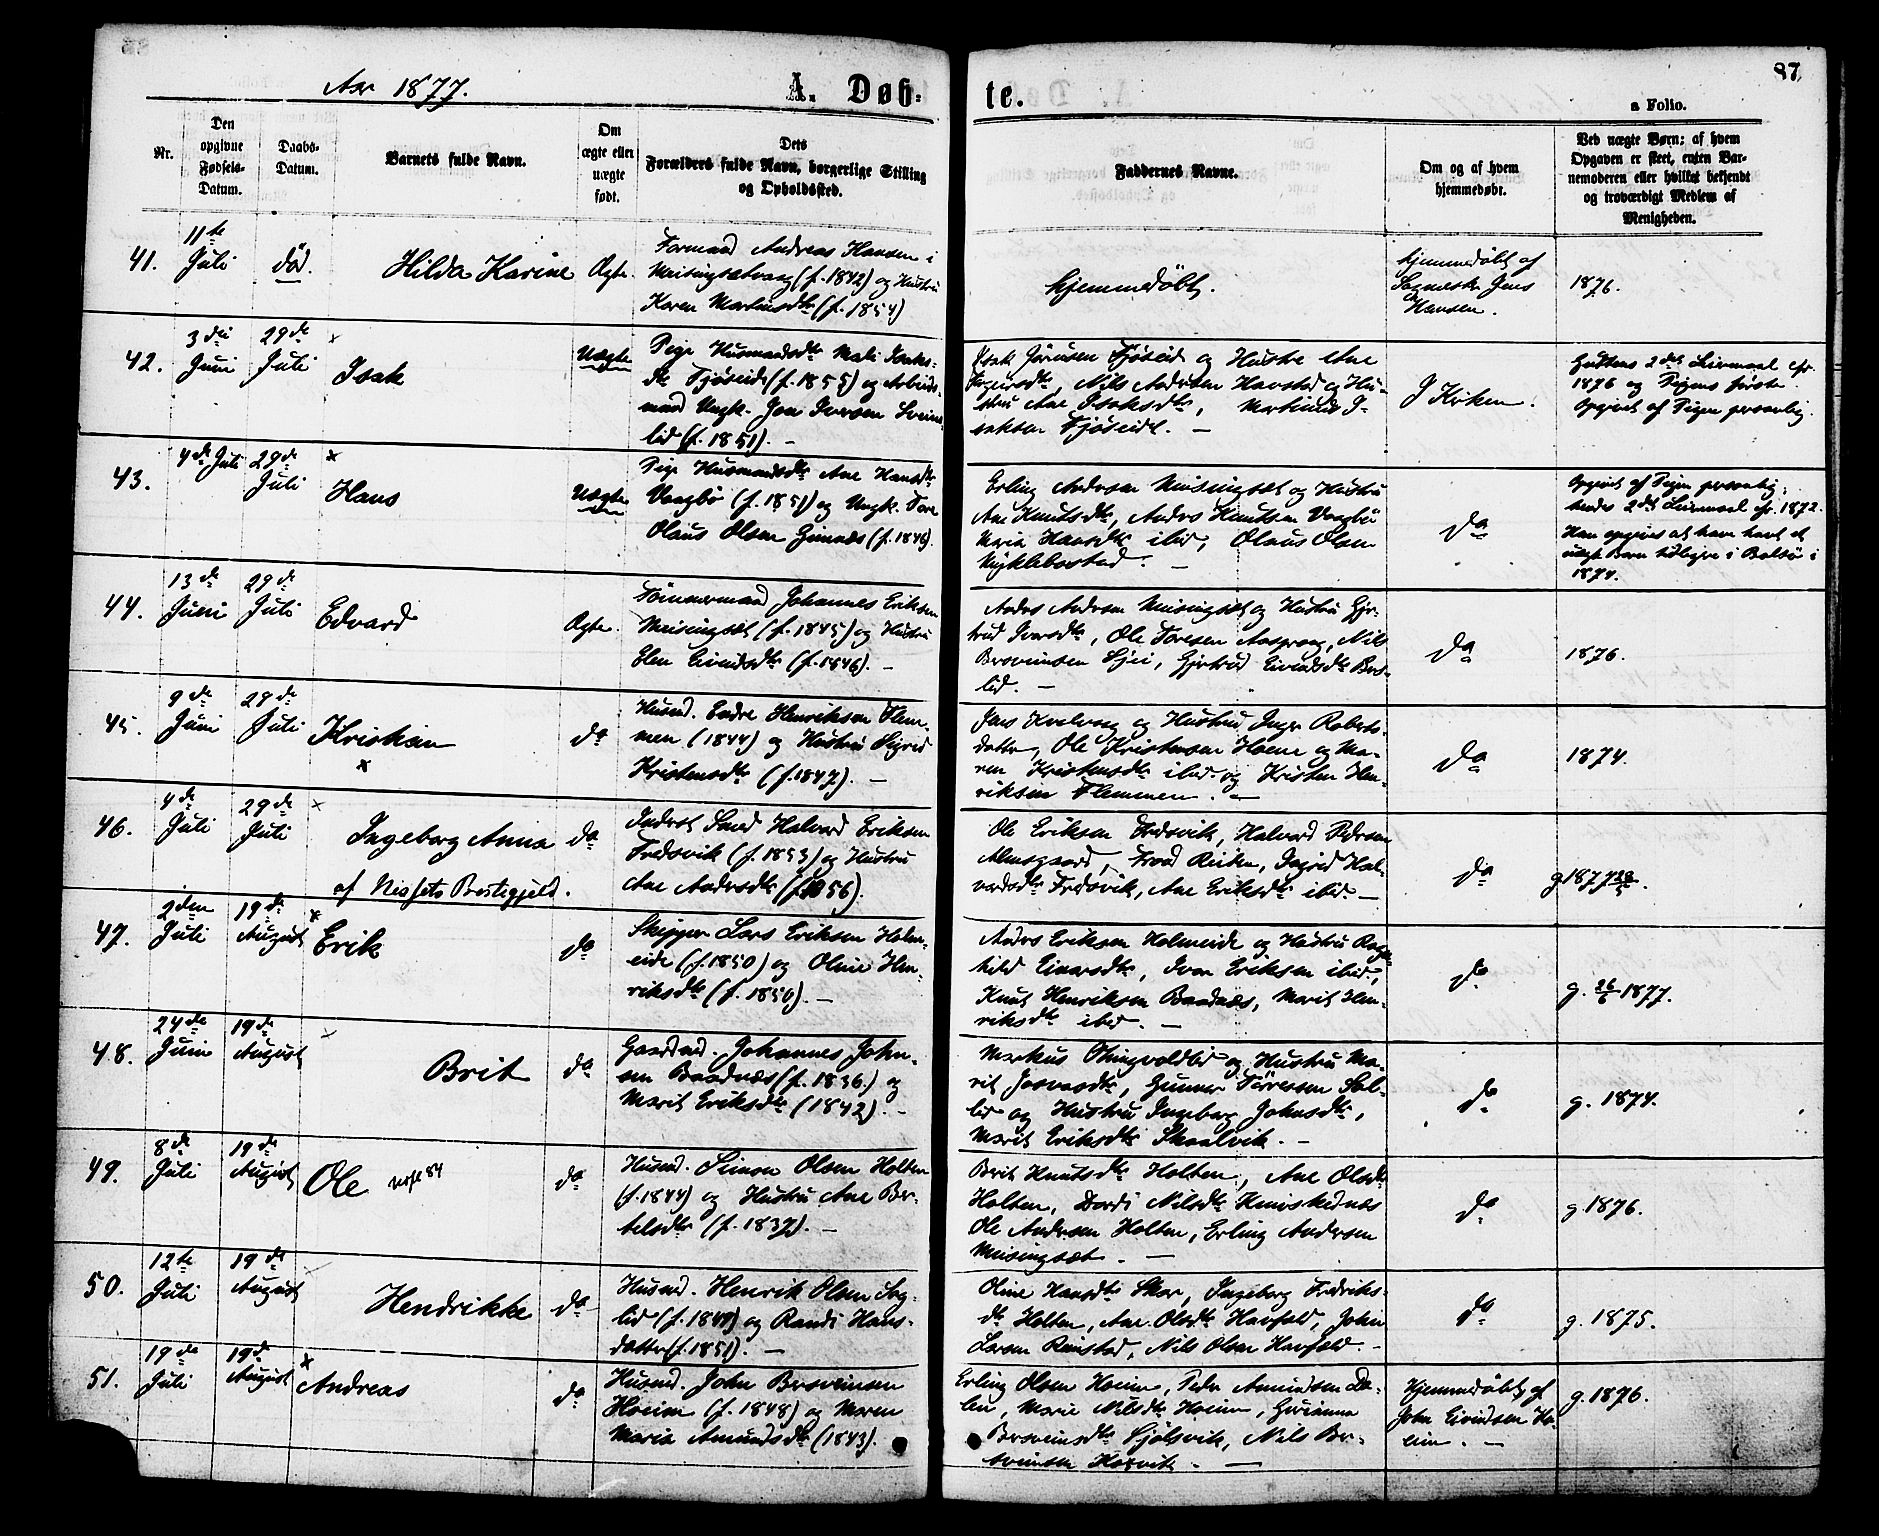 Aar 1877.
A. Døb-
te.
87
a Folio.
Nr.
Den
opgivne
Fødsels-
Datum.
Daabs-
Datum.
Barnets fulde Navn.
Om
ægte eller
uægte
født.
Dets
Forældres fulde Navn, borgerlige Stilling
og Opholdssted.
Faddernes Navne.
Om og af hvem
hjemmedøbt.
Ved uægte Børn; af hvem
Opgaven er skeet, enten Bar-
nemoderen eller hvilket bekjendt
og troværdigt Medlem af
Menigheden.
41.
11te
Juli
død.
Hilda Karine
Ægte.
Formand Andreas Hansen i
Meisingsætvaag (f. 1842) og Hustru
Karen Martinsdtr (f. 1854)
hjemmedøbt.
hjemmedøbt af
Jens
Hansen.
1876.
42.
3die
Juni
29de
Juli
Isak
Uægte
Pige Husmandsdtr Mali Isaks-
dtr Fjøseide (f. 1855) og Arbeids-
mand Ungk. Jon Iversen Sveins-
lid (f. 1851). —
Isak Jørnsen Fjøseid og Hustr Ane
Nils Andersen Havstad og Hu-
stru Ane Isaksdtr, Martinus I-
saksen Fjøseide. —
I Kirken.
2det Leiermaal efr.
1876 og Pigens første.
Opgivet af Pigen personlig.
43.
4de Juli
29de
Juli
Hans
Uægte
Pige Husmandsdtr Ane Hansdtr
Vaagbø (f. 1851) og Ungk. Tore
Olaus Olsen Gimnæs (f. 1846).
Erling Andersen Meisingsæt og Hustru
Ane Knutsdtr, Anders Knutsen Vaagbø
Maria Hansdtr ibid, Olaus Olsen
Myklebostad. —
do
Opgivet af Pigen personlig;
hendes 2det Leiermaal efr. 1872.
Han opgives at have havt et
uægte Barn tidligere i Bolsø i
1874.
44.
13de
Juni
29de
Juli
Edvard
Ægte.
Tømmermand Johannes Eriksen
Meisingsæt (f. 1845) og Hustru
Elen Eivindsdtr (f. 1846). —
Anders Andersen Meisingsæt og Hustru Gjer-
trud Iversdtr, Ole Toresen Aasprong, Nils
Brsveinsen Gjertrud Eivindsdtr Bers-
lid. —
do
1876.
45.
9de
Juni
29de
Juli
Kristian
do
Husmd. Endre Henriksen Flem-
men (1844) og Hustru Sigrid
Kristensdtr (f. 1847). —
Jens Kvalvaag og Hustru Inger Roberts-
datter, Ole Kristensen Hoem og Ma-
ren Kristensdtr ibid. og Kristen Hen-
riksen Flemmen. —
do
1874.
46.
4de
Juli
29de
Juli
Ingeborg Anna
af Nissets Præstegjeld.
do
Inderst Smed Halvard Eriksen
Fredsvik (f. 1853) og Hustru
Ane Andersdtr (f. 1856).
Ole Eriksen Fredsvik, Halvard Pedersen
Ingrid Hal-
vardsdtr Fredsvik, Ane Eriksdtr ibid. —
do
g. 1877
47.
2den
Juli
19de
August
Erik
do
Skipper Lars Eriksen Holm-
eide (f. 1850) og Oline Hen-
riksdtr (f. 1850). —
Anders Eriksen Holmeide og Hustru Ragn-
hild Einarsdtr, Iver Eriksen ibid,
Knut Henriksen Baadnæs, Marit Hen-
riksdtr ibid. —
do
g. 26/6 1877.
48.
24de
Juni
19de
August
Brit
do
Gaardmd. Johannes John-
sen Baadnæs (f. 1836.) og
Marit Eriksdtr (1842). —
Markus Thingvoldlid og Hustru Ma-
rit Gunnar Torresen Sol-
lid og Hustru Ingeborg Johnsdtr,
Marit Eriksdtr Skaalvik. —
do
g. 1874.
49.
8de
Juli
19de
August
Ole
do
Husmd. Simon Olsen Holten
(f. 1844) og Hustru Ane Ber-
telsdtr (f. 1837). —
Berit Knutsdtr Holten, Ane Olsdtr
Holten, Dordi Nilsdtr
Ole Andersen Holten, Erling Andersen
Meisingsæt. —
do
g. 1876.
50.
12te
Juli
19de
August
Hendrikke
do
Husmd. Henrik Olsen Sog-
lid (f. 1849) og Randi Hans-
datter (f. 1851). —
Oline Hansdtr Skar, Ingeborg Fredriks-
dtr Holten, Ane Olsdtr Havfold, John
Larsen Rimstad, Nils Olsen Havfold. —
do
g. 1875.
51.
19de
Juli
19de
August
Andreas
do
Husmd. John Brsveinsen
Hoeim (f. 1848) og Maren
Maria Amundsdtr (1843).
Erling Olsen Hoeim, Peder Amundsen Da-
len, Marie Nilsdtr Hoeim, Gurianna
Brsveinsdtr Gjølsvik, Nils Br-
sveinsen Hoxvik. —
Hjemmedøbt af
John Eivindsen Ho-
eim. —
g. 1876.